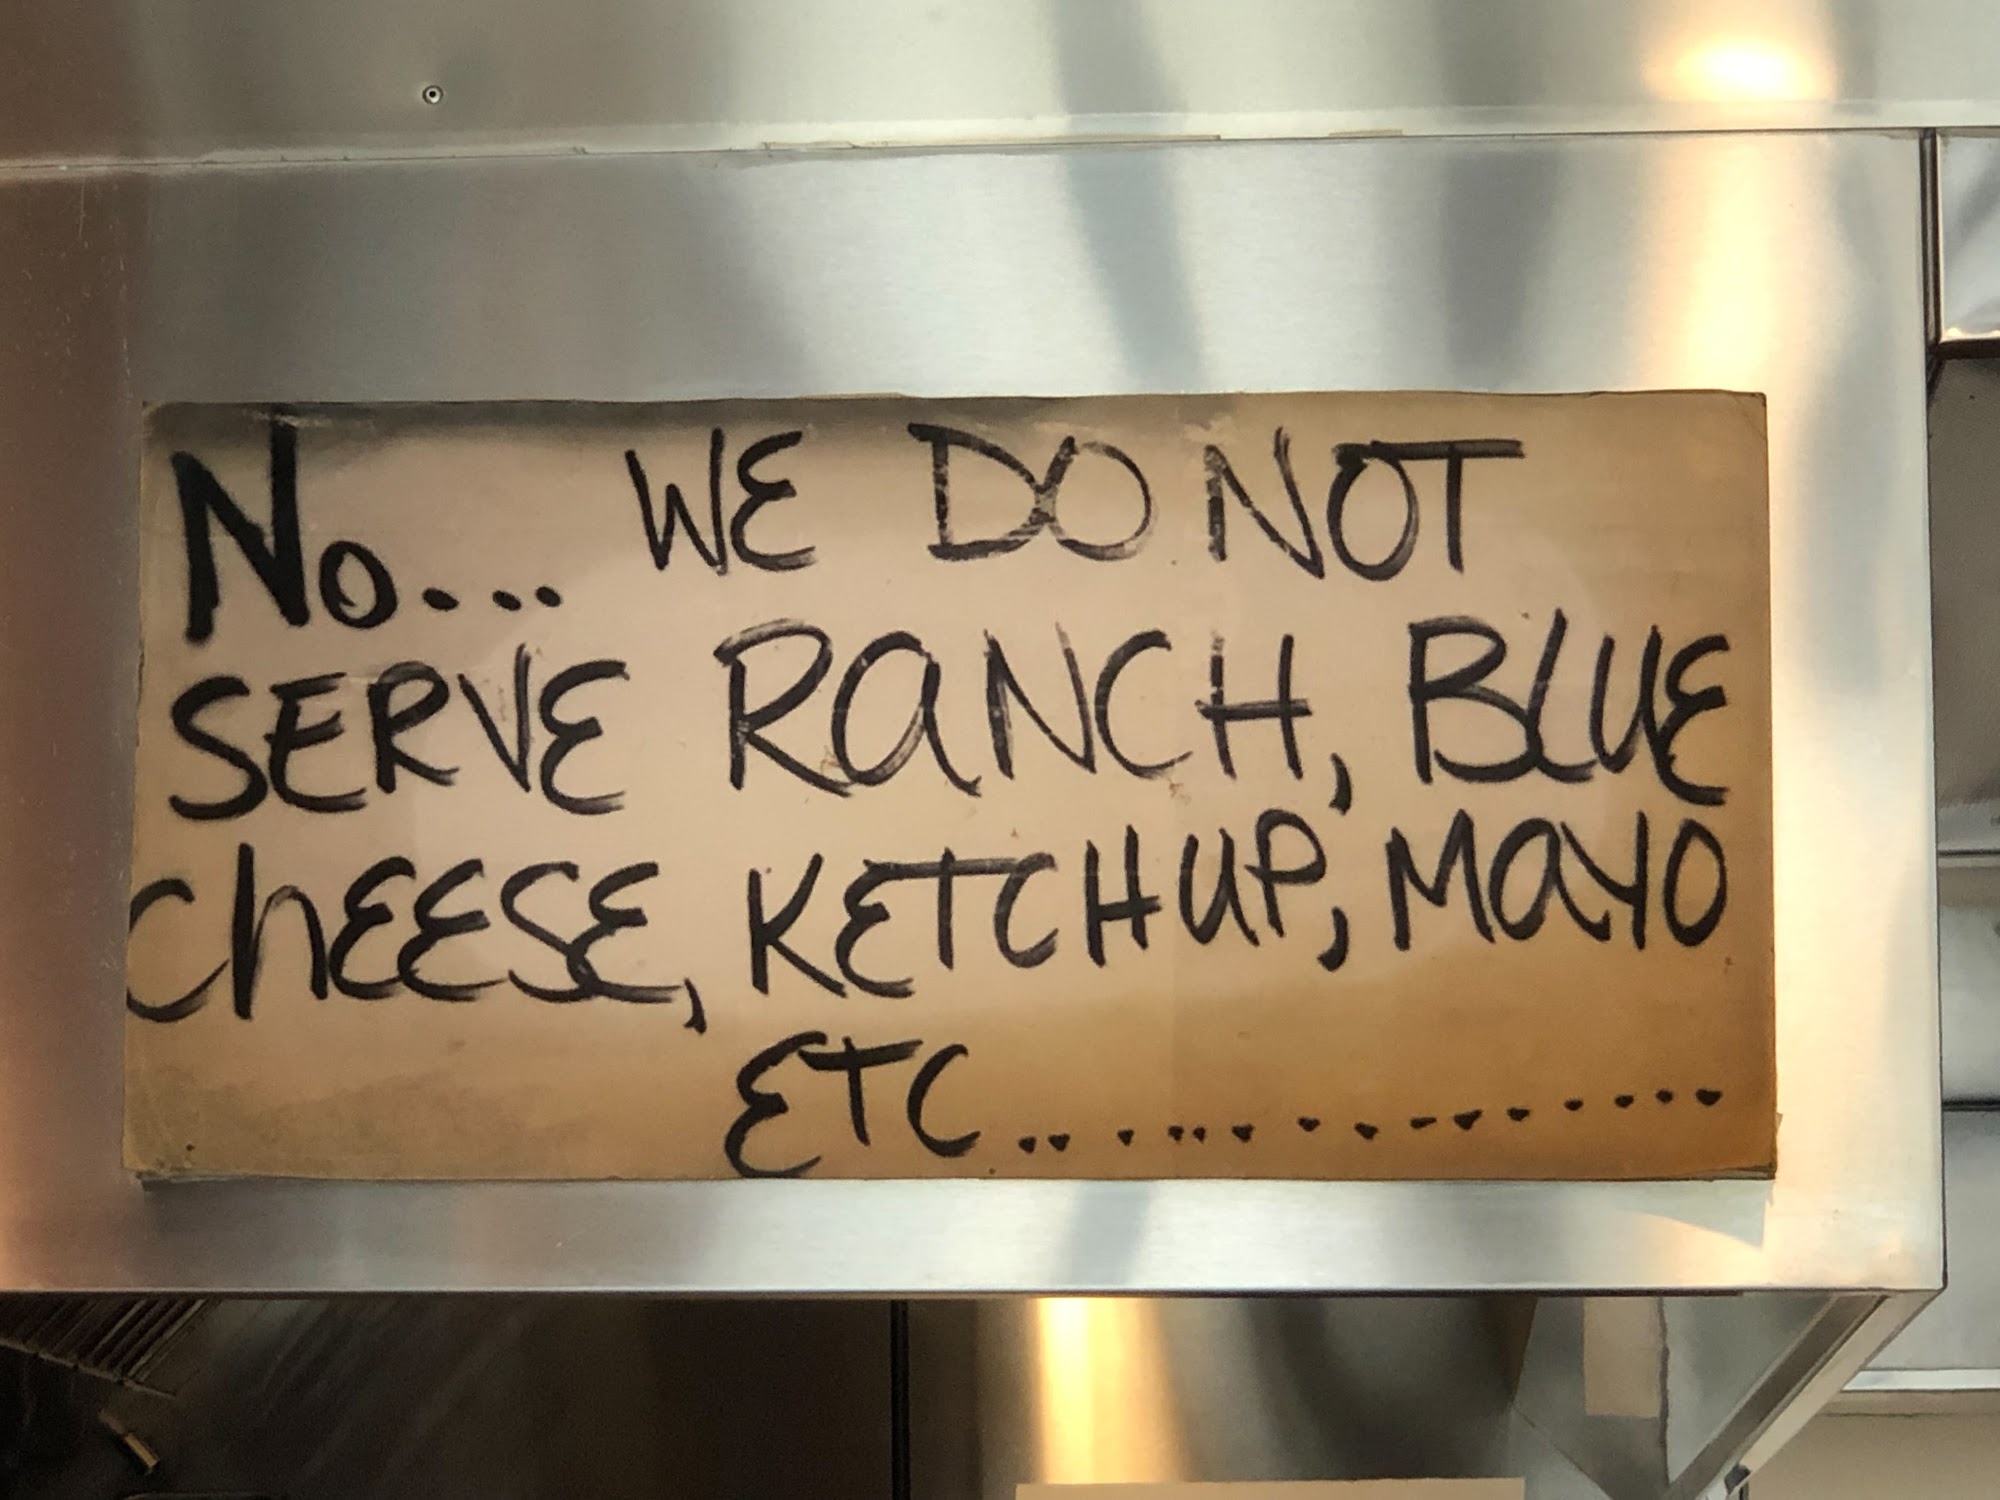 No.... WE DO NOT
SERVE RANCH, BLUE
ChEESE, KETCHUP, MAYO
ETC................